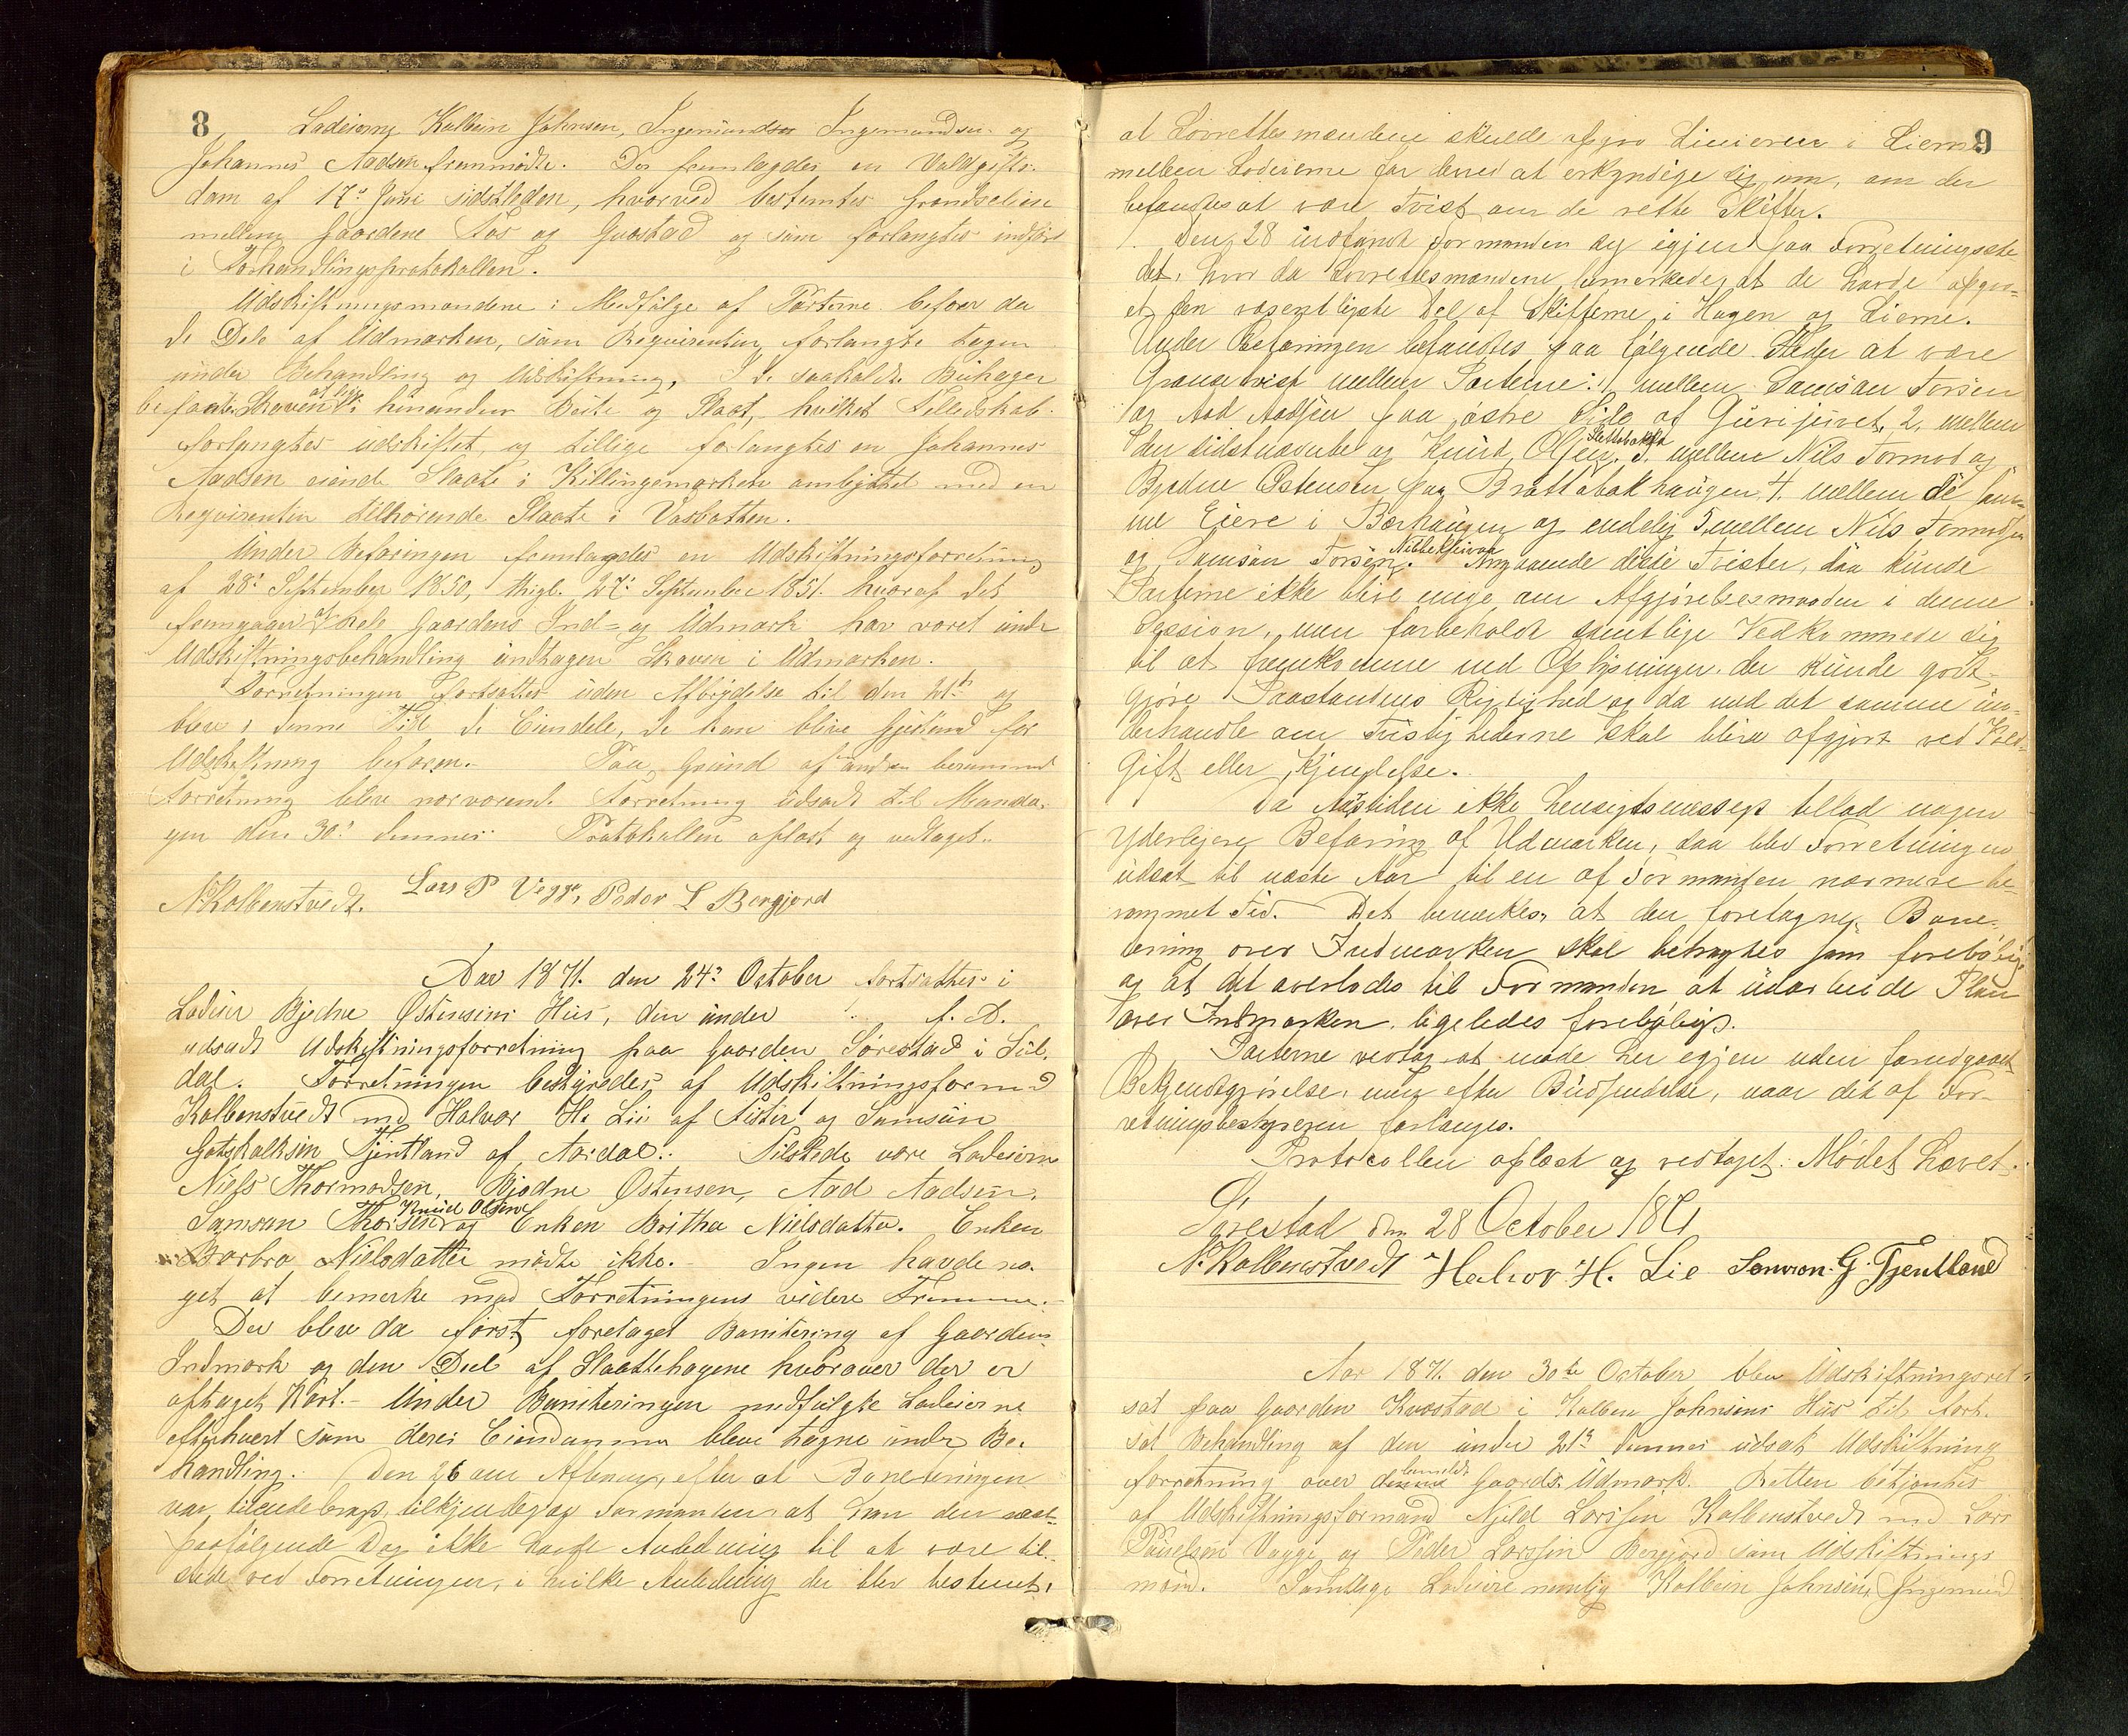 8
Lodeierne Kolbein Johnsen, Ingemundsen Ingemundsen og
Johannes Aadsen fremmødte. Der fremlagdes en Voldgifts-
dom af 17de Juni sidstleden, hvorved bestemtes Grændselinie
mellem Gaardene Fos og Gvastad og som forlangtes indført
i Forhandlingsprotokollen.
Udskiftningsmændene i Medfølge af Parterne befoer da
de Dele af Udmarken, som Reqvirenten forlangte tagen
under Behandling og Udskiftning, I de saakaldte Buhager
befantes Skoven at ligge i hinanden Beite og Slaat, hvilket Fælledskab
forlangtes udskiftet, og tillige forlangtes en Johannes
Aadsen eiende Slaate i Killingemarken ombyttet med en
Reqvirenten tilhørende Slaate i Vasbotten.
Under Befaringen fremlagdes en Udskiftningsforretning
af 28de September 1850, thigl. 27de September 1851. hvoraf det
fremgaaer at hele Gaardens Ind- og Udmark har været under
Udskiftningsbehandling undtagen Skoven i Udmarken.
Forretningen fortsattes uden Afbrydelse til den 21de og
blev i denne Tid de Eiendele, de kan blive Gjestand for
Udskiftning befaren. Paa Grund af anden berammet
Forretning blev nærværende Forretning udsadt til Manda-
gen den 30te dennes. Protokollen oplæst og vedtaget.
N Kolbenstvedt. Lars P Vegge, Peder L Bergjord
Aar 1871. den 24de October fortsattes i
Lodeier Bjødne Østensens Hus, den under f. D.
udsadt Udskiftningsforretning paa Gaarden Sørestad i Sul-
dal. Forretningen bestyredes af Udskiftningsformand
Kolbenstvedt med Halvor H. Lie af Fister og Samson
Gotskalksen Tjentland af Aardal. Tilstede vare Lodeierne
Niels Thormodsen, Bjødne Østensen, Aad Aadsen,
Samson Thorsen Knud Olsen og Enken Britha Nielsdatter. Enken
Barbra Nielsdatter mødte ikke. Ingen havde no-
get at bemerke mod Forretningens videre Fremme.
Der blev da først foretaget Bonitering af Gaardens
Indmark og den Deel af Slaattehagene hvorover der er
optaget Kart. Under Boniteringen medfulgte Lodeierne
efterhvert som deres Eiendomme bleve tagne under Be-
handling. Den 26 om Aftenen, efter at Boneteringen
var tilendebragt, tilkjendegav Formanden at han den næst-
paafølgende Dag ikke havde Anledning til at være til-
stede ved Forretningen, i hvilke Anledning der blev bestemt,
9
at Lovrettesmændene skulde opgaa Linieren i Lierne
mellem Lodeierne for derved at erkyndige sig om, om der
befandtes at være Tvist om de rette Skifter.
Den 28 indfandt Formanden sig igjen paa Forretningsste-
det, hvor da Lovrettesmændene bemærkede, at de havde opgaa-
et den væsentligste Del af Skifterne i Hagen og Lierne.
Under Befaringen befandtes paa følgende Steder at være
Grændsetvist mellem Parterne: 1, mellem Samson Torsen
og Aad Aadsen paa østre Side af Gurijuvet, 2, mellem
den sidstnævnte og Knud Olsen Slettebakka. 3, mellem Nils Tormod og
Bjødne Østensen paa Brattabakhaugen 4. mellem de sam-
me Eiere i Børhaugen og endelig 5 mellem Nils Tormodsen
og Samson Torsen. Angaaende disse Tvister, saa kunde
Parterne ikke blive enige om Afgjørelsesmaaden i denne
Session, men forbeholdt samtlige Vedkommende sig
til at fremkomme med Oplysninger, der kunde godt-
gjøre Paastandens Rigtighed og da med det samme un-
derhandle om Tvistighederne skal blive afgjort ved Vold-
gift eller Kjendelse.
Da Aarstiden ikke hensigtsmæssigt tillod nogen
yderligere Befaring af Udmarken, saa blev Forretningen
udsat til næste Aar til en af Formanden nærmere be-
rammet Tid. Det bemærkes, at den foretagne Bone-
tering over Indmarken skal betragtes som foreløbig
og at det overlodes til Formanden at udarbeide Plan
over Indmarken, ligeledes foreløbigt.
Parterne vedtog at møde her igjen uden forudgaaet
Bekjendtgjørelse, men efter Budsendelse, naar det af For-
retningsbestyreren forlanges.
Protocollen oplæst og vedtaget. Mødet hævet.
Sørestad den 28 October 1871
N. Kolbenstvedt Halvor H. Lie Samson G. Tjentland
Aar 1871. den 30te October blev Udskiftningsret
sat paa Gaarden Kvastad i Kolben Johnsens Hus til fort-
sat Behandling af den under 21de dennes udsatt Udskiftning
forretning over bemeldte Gaards Udmark. Retten betjentes
af Udskiftningsformand Njeld Larssen Kolbenstvedt med Lars
Paulsen Vegge og Peder Larssen Bergjord som Udskiftnings
mænd. Samtlige Lodeiere nemlig Kolbein Johnsen, Ingemund